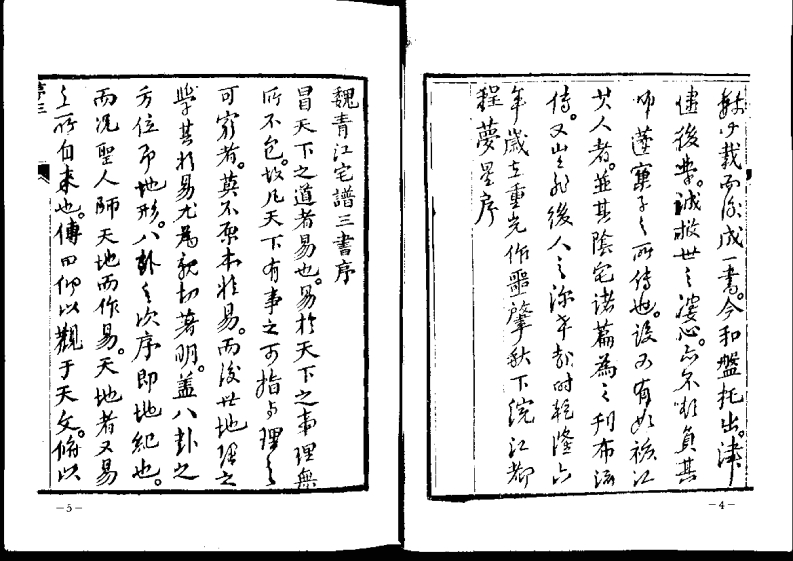 數十載而後成一書。今和盤托出。津
儘後學。誠救世之婆心。亦不欲負其
師蓬窠子之所傳也。設不有如
其人者。並其陰宅諸篇為之刊布流
傳。又豈非後人之深幸哉時乾隆六
年歲在重光作噩肇秋下浣江都
程夢星序
-4-
魏青江宅譜三書序
冒天下之道者易也。易於天下之事理無
所不包。故凡天下有事之可指与理之
可窮者。莫不原本於易。而後世地理之
學其於易尤為親切著明。蓋八卦之
方位即地形。八卦之次序即地紀也。
而況聖人師天地而作易。天地者又易
之所自来也。傳曰仰以觀于天文。俯以
序三
-5-